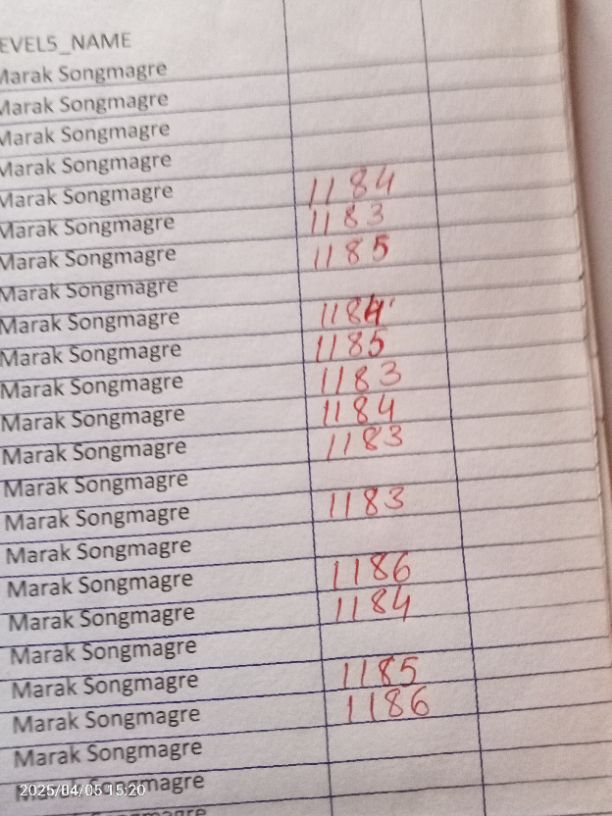 EVEL5_NAME
Marak Songmagre
Marak Songmagre
Marak Songmagre
Marak Songmagre
Marak Songmagre 1184
Marak Songmagre 1183
Marak Songmagre 1185
Marak Songmagre
Marak Songmagre 1184
Marak Songmagre 1185
Marak Songmagre 1183
Marak Songmagre 1184
Marak Songmagre 1183
Marak Songmagre
Marak Songmagre 1183
Marak Songmagre
Marak Songmagre 1186
Marak Songmagre 1184
Marak Songmagre
Marak Songmagre 1185
Marak Songmagre 1186
Marak Songmagre
Marak Songmagre
2025/04/05 15:20